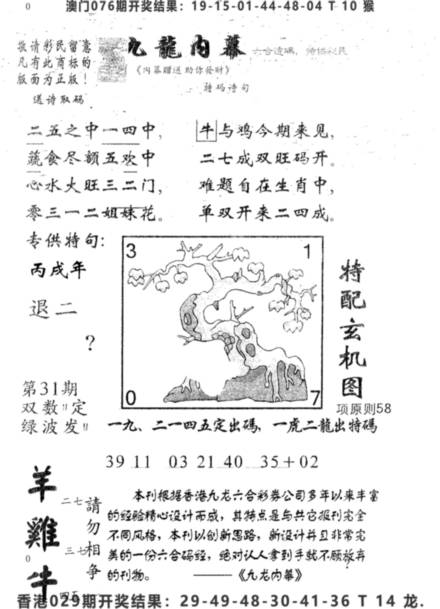 澳门076期开奖结果：19-15-01-44-48-04 T 10 猴
0
敬请彩民留意
凡有此商标的
版面为正版！
九龍内幕
六合透碼，特福彩民
《内幕赠送 助你发财》
送诗取码
特码诗句
二五之中一四中，
蔬食尽额五欢中
心水大旺三二门，
零三一二姐妹花。
牛与鸡今期来见，
二七成双旺码开。
难题自在生肖中，
单双开来二四成。
专供特句：
丙戌年
退二
？
第31期
双数〃定
绿波发〃
3 1
0 7
特配玄机图
项原则58
一九、二一四五定出碼，一虎二龍出特碼
39 11 03 21 40 35+02
羊雞牛
二七
三七
四五
請勿相争
0
本刊根据香港九龙六合彩券公司多年以来丰富
的经验精心设计而成，其特点是与共它报刊完全
不同风格，本刊以创新思路，新设计并且非常完
美的一份六合码经，绝对认人拿到手就不顾放弃
的刊物。 ——《九龙内幕》
香港029期开奖结果：29-49-48-30-41-36 T 14 龙.